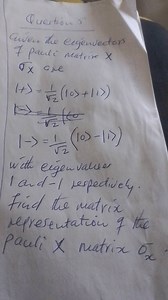 Question 3
Given the eigenvectors
of pauli matrix X
σx are
|+⟩ = 1/√2 (|0⟩ + |1⟩)
|−⟩ = 1/√2 (|0
|−⟩ = 1/√2 (|0⟩ − |1⟩)
with eigenvalues
1 and -1 respectively.
find the matrix
representation of the
pauli X matrix σx.